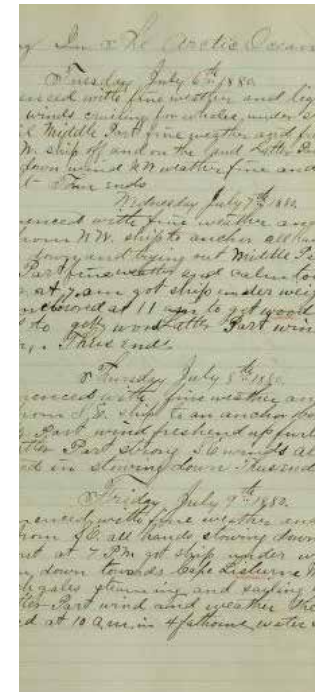 In The Arctic Ocean
Tuesday July 6th 1880.
enced with fine weather and lig
winds cruising for whales, under s
Middle Part fine weather and fr
W. ship off and on the land Latter Par
down wind NW weather fine and
Thus ends
Wednesday July 7th 1880.
enced with fine weather and
from N.W. ship to anchor all han
and trying out Middle Pa
Part fine weather and calm to
at 7 a.m got ship under weig
anchored at 11 am to get wood
to get wood Latter Part win
Thus ends
Thursday July 8th 1880.
enced with fine weather an
from S.E. ship to an anchor
Part wind freshend up furl
tter Part strong S.E winds al
d in stowing down Thus end
Friday July 9th 1880.
enced with fine weather and
from S.E. all hands stowing down
at 7 P.M got ship under w
down towards Cape Lisburne
gales steaming and sailing
tter Part wind and weather the
d at 10 a.m. in 4 fathoms water